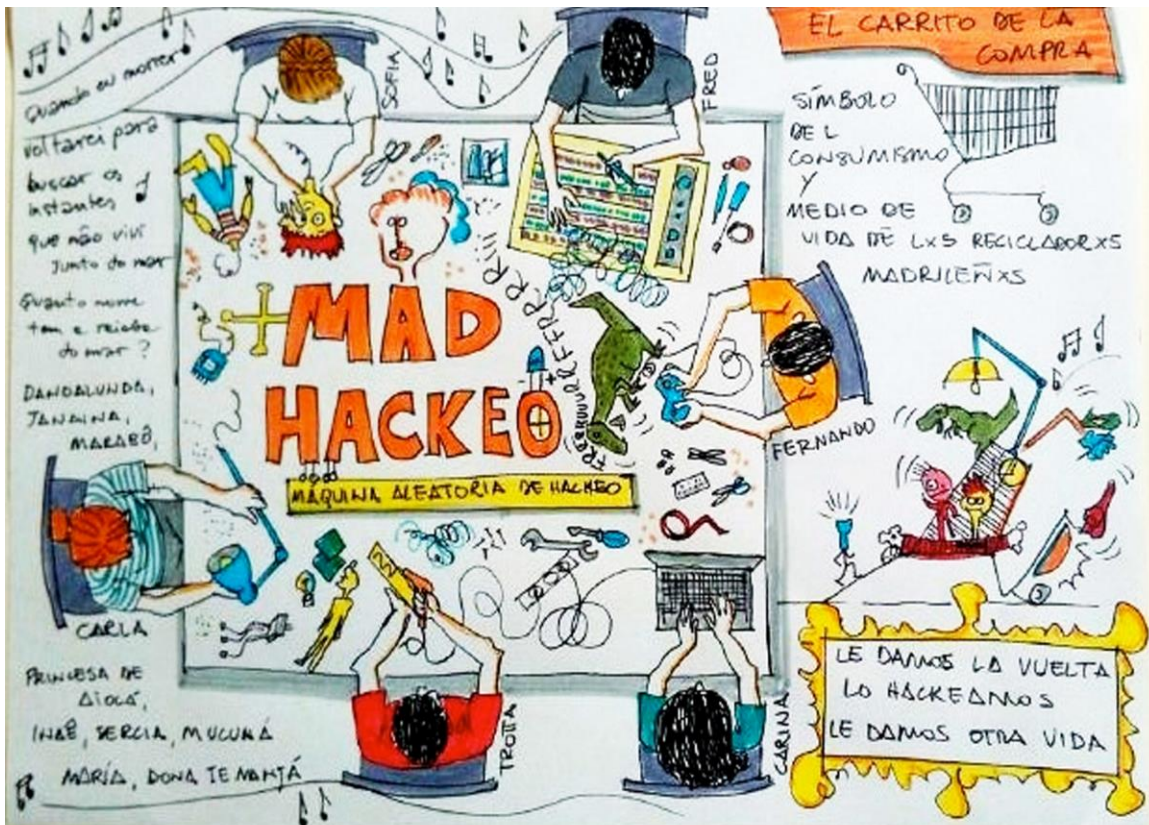 Quando eu morrer
voltarei para
buscar os
instantes
que não vivi
junto do mar
Quanto nome
tem a rainha
do mar ?
DANDALUNDA,
JANAINA,
MARABÔ,
CARLA
PRINCESA DE
AIOCÁ,
INAÊ, SEREIA, MUCUNÃ
MARÍA, DONA IEMANJÁ
SOFIA
FRED
MAD
HACKEO
MAQUINA ALEATORIA DE HACKEO
FERNANDO
TROTTA
CARINA
EL CARRITO DE LA
COMPRA
SÍMBOLO
DEL
CONSUMISMO
Y
MEDIO DE
VIDA DE LXS RECICLADORXS
MADRILEÑXS
LE DAMOS LA VUELTA
LO HACKEAMOS
LE DAMOS OTRA VIDA